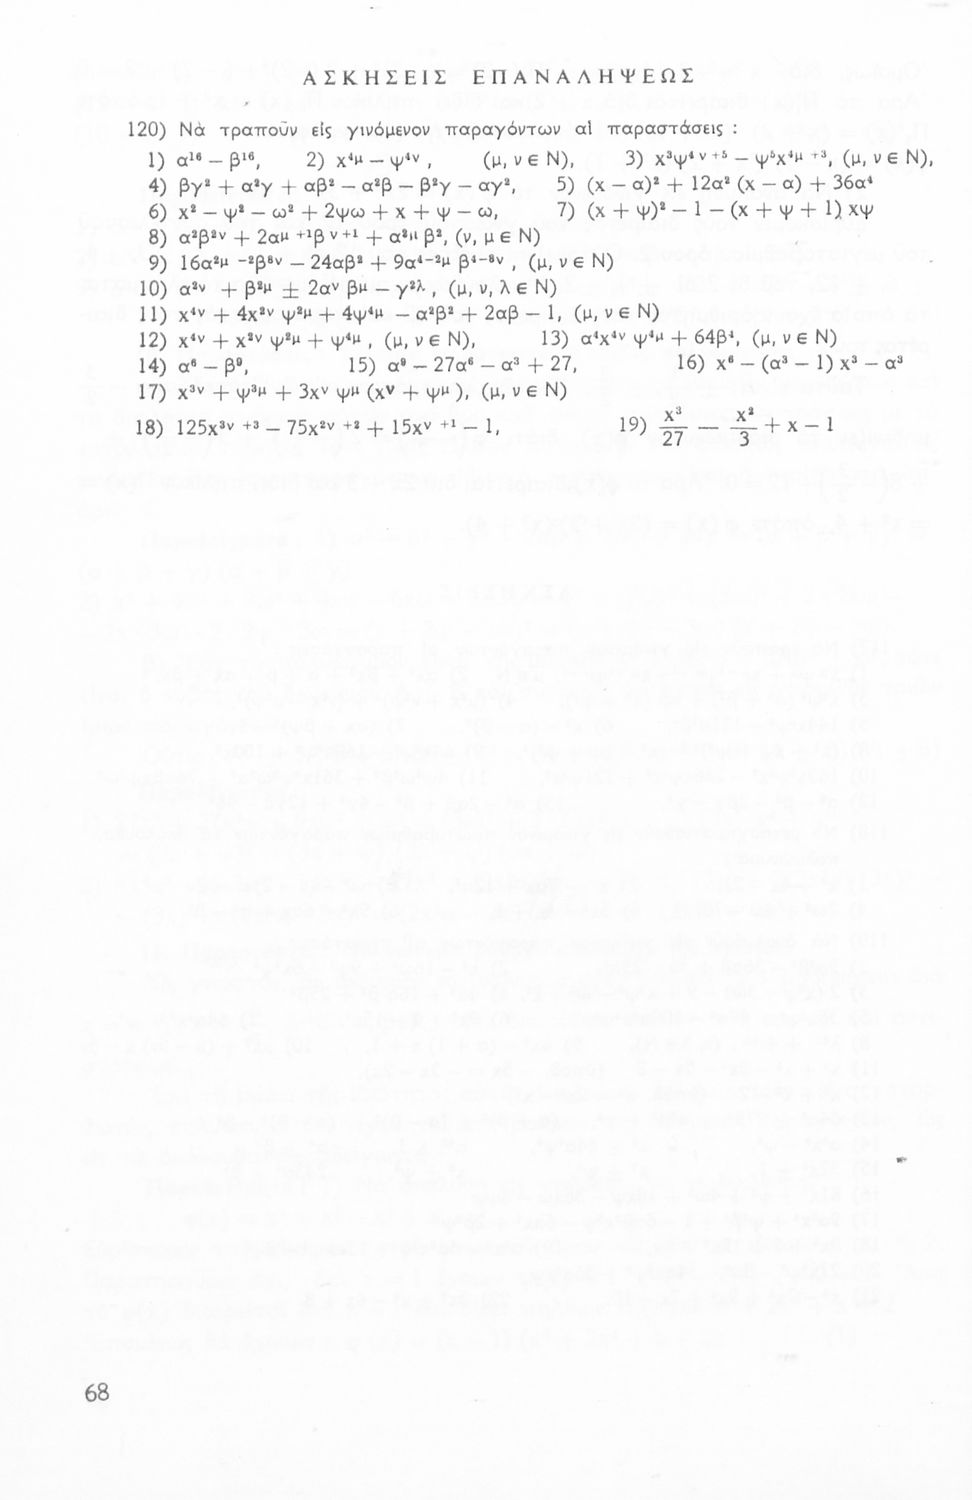 ΑΣΚΗΣΕΙΣ ΕΠΑΝΑΛΗΨΕΩΣ
120) Νὰ τραποῦν εἰς γινόμενον παραγόντων αἱ παραστάσεις :
1) α¹⁶ — β¹⁶, 2) x⁴ᵘ — ψ⁴ᵛ , (μ, ν ∈ Ν), 3) x³ψ⁴ᵛ⁺⁵ — ψ⁵x⁴ᵘ⁺³, (μ, ν ∈ Ν),
4) βγ² + α²γ + αβ² — α²β — β²γ — αγ², 5) (x — α)² + 12α² (x — α) + 36α⁴
6) x² — ψ² — ω² + 2ψω + x + ψ — ω, 7) (x + ψ)² — 1 — (x + ψ + 1) xψ
8) α²β²ᵛ + 2αᵘ⁺¹βᵛ⁺¹ + α²ᵘ β², (ν, μ ∈ Ν)
9) 16α²ᵘ⁻²β⁸ᵛ — 24αβ² + 9α⁴⁻²ᵘ β⁴⁻⁸ᵛ , (μ, ν ∈ Ν)
10) α²ᵛ + β²ᵘ ± 2αᵛ βᵘ — γ²^λ , (μ, ν, λ ∈ Ν)
11) x⁴ᵛ + 4x²ᵛ ψ²ᵘ + 4ψ⁴ᵘ — α²β² + 2αβ — 1, (μ, ν ∈ Ν)
12) x⁴ᵛ + x²ᵛ ψ²ᵘ + ψ⁴ᵘ , (μ, ν ∈ Ν), 13) α⁴x⁴ᵛ ψ⁴ᵘ + 64β⁴, (μ, ν ∈ Ν)
14) α⁶ — β⁹, 15) α⁹ — 27α⁶ — α³ + 27, 16) x⁶ — (α³ — 1) x³ — α³
17) x³ᵛ + ψ³ᵘ + 3xᵛ ψᵘ (xᵛ + ψᵘ ), (μ, ν ∈ Ν)
18) 125x³ᵛ⁺³ — 75x²ᵛ⁺² + 15xᵛ⁺¹ — 1, 19) x³/27 — x²/3 + x — 1
68